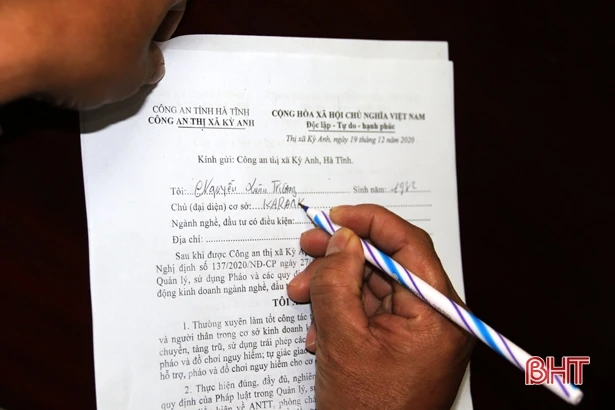 CÔNG AN TỈNH HÀ TĨNH
CÔNG AN THỊ XÃ KỲ ANH
CỘNG HÒA XÃ HỘI CHỦ NGHĨA VIỆT NAM
Độc lập - Tự do - hạnh phúc
Thị xã Kỳ Anh, ngày 19 tháng 12 năm 2020
Kính gửi: Công an thị xã Kỳ Anh, Hà Tĩnh.
Tôi: Nguyễn Xuân Trường Sinh năm: 1982
Chủ (đại diện) cơ sở: KARAOK
Ngành nghề, đầu tư có điều kiện:
Địa chỉ:
Sau khi được Công an thị xã Kỳ
Nghị định số 137/2020/NĐ-CP ngày 27
Quản lý, sử dụng Pháo và các quy
động kinh doanh ngành nghề, đầu
TÔI
1. Thường xuyên làm tốt công tác
và người thân trong cơ sở kinh doanh
chuyển, tàng trữ, sử dụng trái phép các
pháo và đồ chơi nguy hiểm; tự giác giao
hỗ trợ, pháo và đồ chơi nguy hiểm.
2. Thực hiện đúng, đầy đủ, nghiêm
quy định của Pháp luật trong Quản lý, sử
kiện về ANTT, phòng
BHT